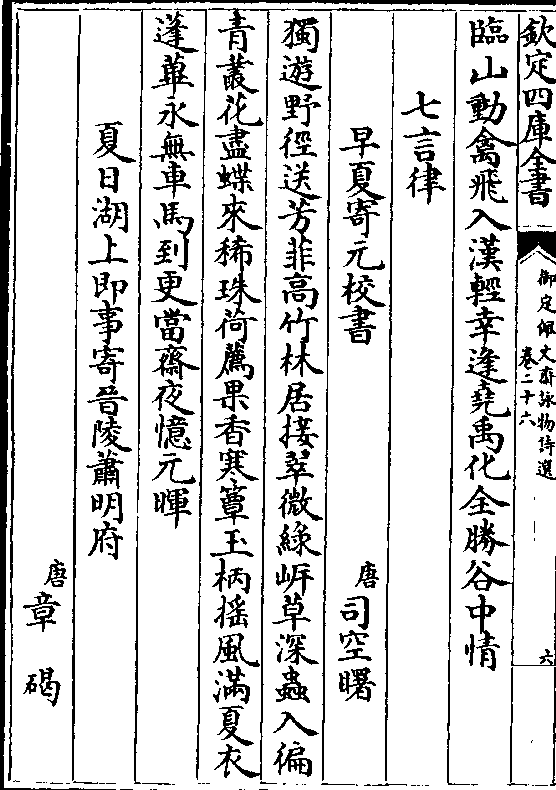 欽定四庫全書
御定佩文齋詠物詩選
卷二十六
六
臨山動禽飛入漢輕幸逢堯禹化全勝谷中情
七言律
早夏寄元校書
唐司空曙
獨遊野徑送芳菲高竹林居接翠微綠岍草深蟲入徧
青叢花盡蝶來稀珠荷薦果香寒簟玉柄搖風滿夏衣
蓬蓽永無車馬到更當齋夜憶元暉
夏日湖上即事寄晉陵蕭明府
唐章碣